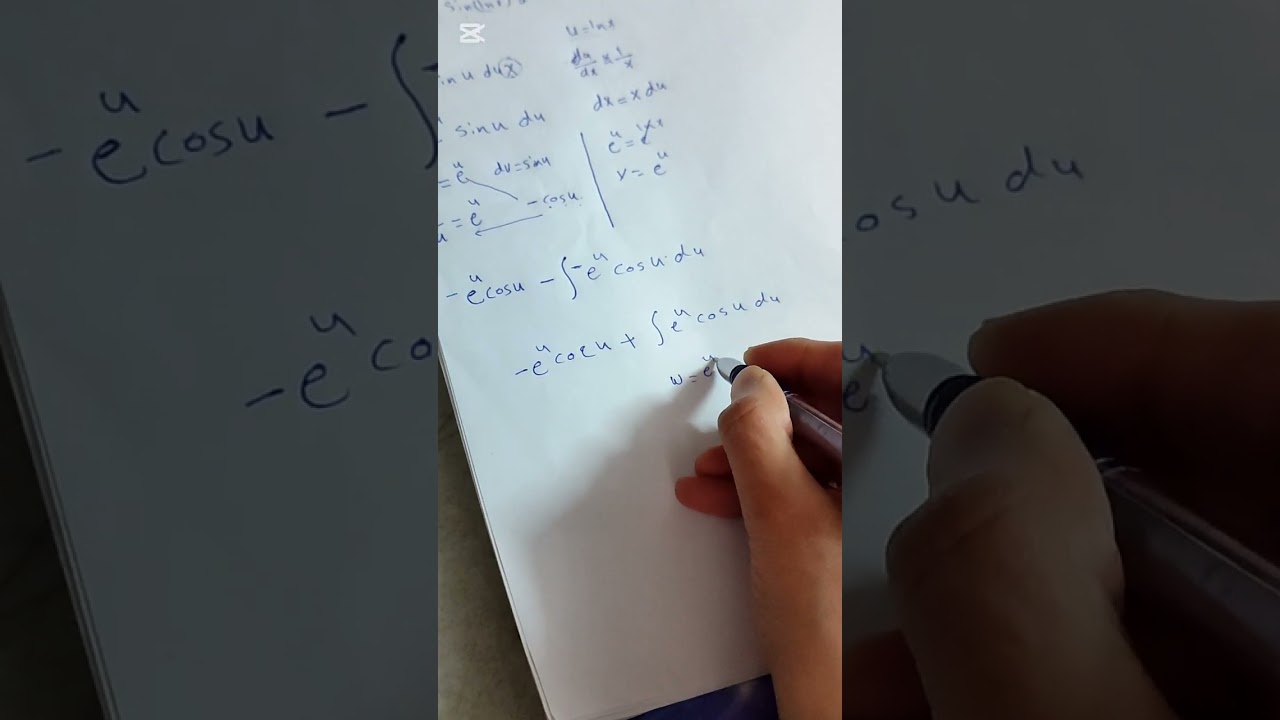 sin(lnx)
u = lnx
in u du x
du/dx × 1/x
dx = x du
sinu du
e^u = e^lnx
= e^u dv = sinu
x = e^u
= e^u - cosu.
-e^u cosu - ∫ -e^u cosu. du
-e^u cosu + ∫ e^u cosu du
w = e^u